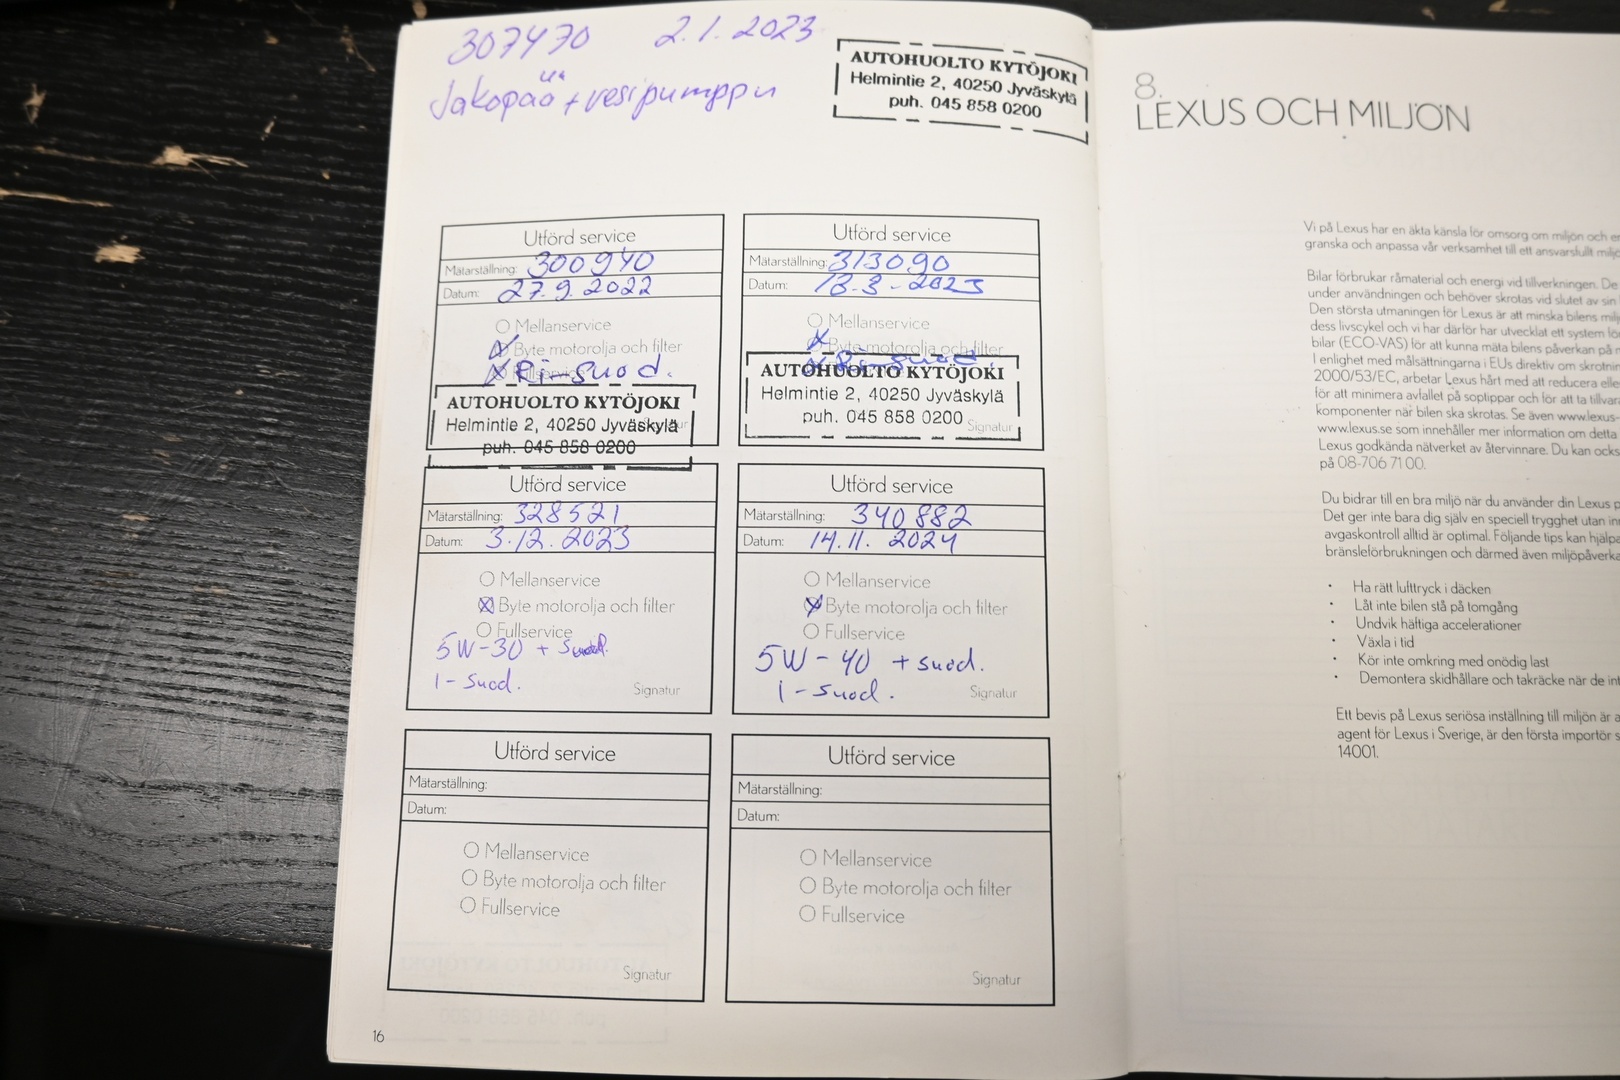 307470 2.1.2023
Jakopää + vesipumppu
AUTOHUOLTO KYTÖJOKI
Helmintie 2, 40250 Jyväskylä
puh. 045 858 0200
Utförd service
Mätarställning: 300940
Datum: 27.9.2022
Mellanservice
Byte motorolja och filter
Ri-suod.
AUTOHUOLTO KYTÖJOKI
Helmintie 2, 40250 Jyväskylä
puh. 045 858 0200
Utförd service
Mätarställning: 313090
Datum: 13.3-2023
Mellanservice
Byte motorolja och filter
Ri-suod.
AUTOHUOLTO KYTÖJOKI
Helmintie 2, 40250 Jyväskylä
puh. 045 858 0200
Signatur
Utförd service
Mätarställning: 328521
Datum: 3.12.2023
Mellanservice
Byte motorolja och filter
Fullservice
5W-30 + suod.
i-suod.
Signatur
Utförd service
Mätarställning: 340882
Datum: 14.11. 2024
Mellanservice
Byte motorolja och filter
Fullservice
5W-40 + suod.
i-suod.
Signatur
Utförd service
Mätarställning:
Datum:
Mellanservice
Byte motorolja och filter
Fullservice
Signatur
Utförd service
Mätarställning:
Datum:
Mellanservice
Byte motorolja och filter
Fullservice
Signatur
16
8.
LEXUS OCH MILJÖN
Vi på Lexus har en äkta känsla för omsorg om miljön och
granska och anpassa vår verksamhet till ett ansvarsfullt
Bilar förbrukar råmaterial och energi vid tillverkningen. De
under användningen och behöver skrotas vid slutet av sin
Den största utmaningen för Lexus är att minska bilens
dess livscykel och vi har därför har utvecklat ett system
bilar (ECO-VAS) för att kunna mäta bilens påverkan på
I enlighet med målsättningarna i EUs direktiv om
2000/53/EC, arbetar Lexus hårt med att reducera
för att minimera avfallet på soptippar och för att ta
komponenter när bilen ska skrotas. Se även www.lexus-
www.lexus.se som innehåller mer information om detta
Lexus godkända nätverket av återvinnare. Du kan
på 08-706 71 00.
Du bidrar till en bra miljö när du använder din Lexus
Det ger inte bara dig själv en speciell trygghet utan
avgaskontroll alltid är optimal. Följande tips kan
bränsleförbrukningen och därmed även
• Ha rätt lufttryck i däcken
• Låt inte bilen stå på tomgång
• Undvik häftiga accelerationer
• Växla i tid
• Kör inte omkring med onödig last
• Demontera skidhållare och takräcke när de
Ett bevis på Lexus seriösa inställning till miljön är
agent för Lexus i Sverige, är den första importör
14001.